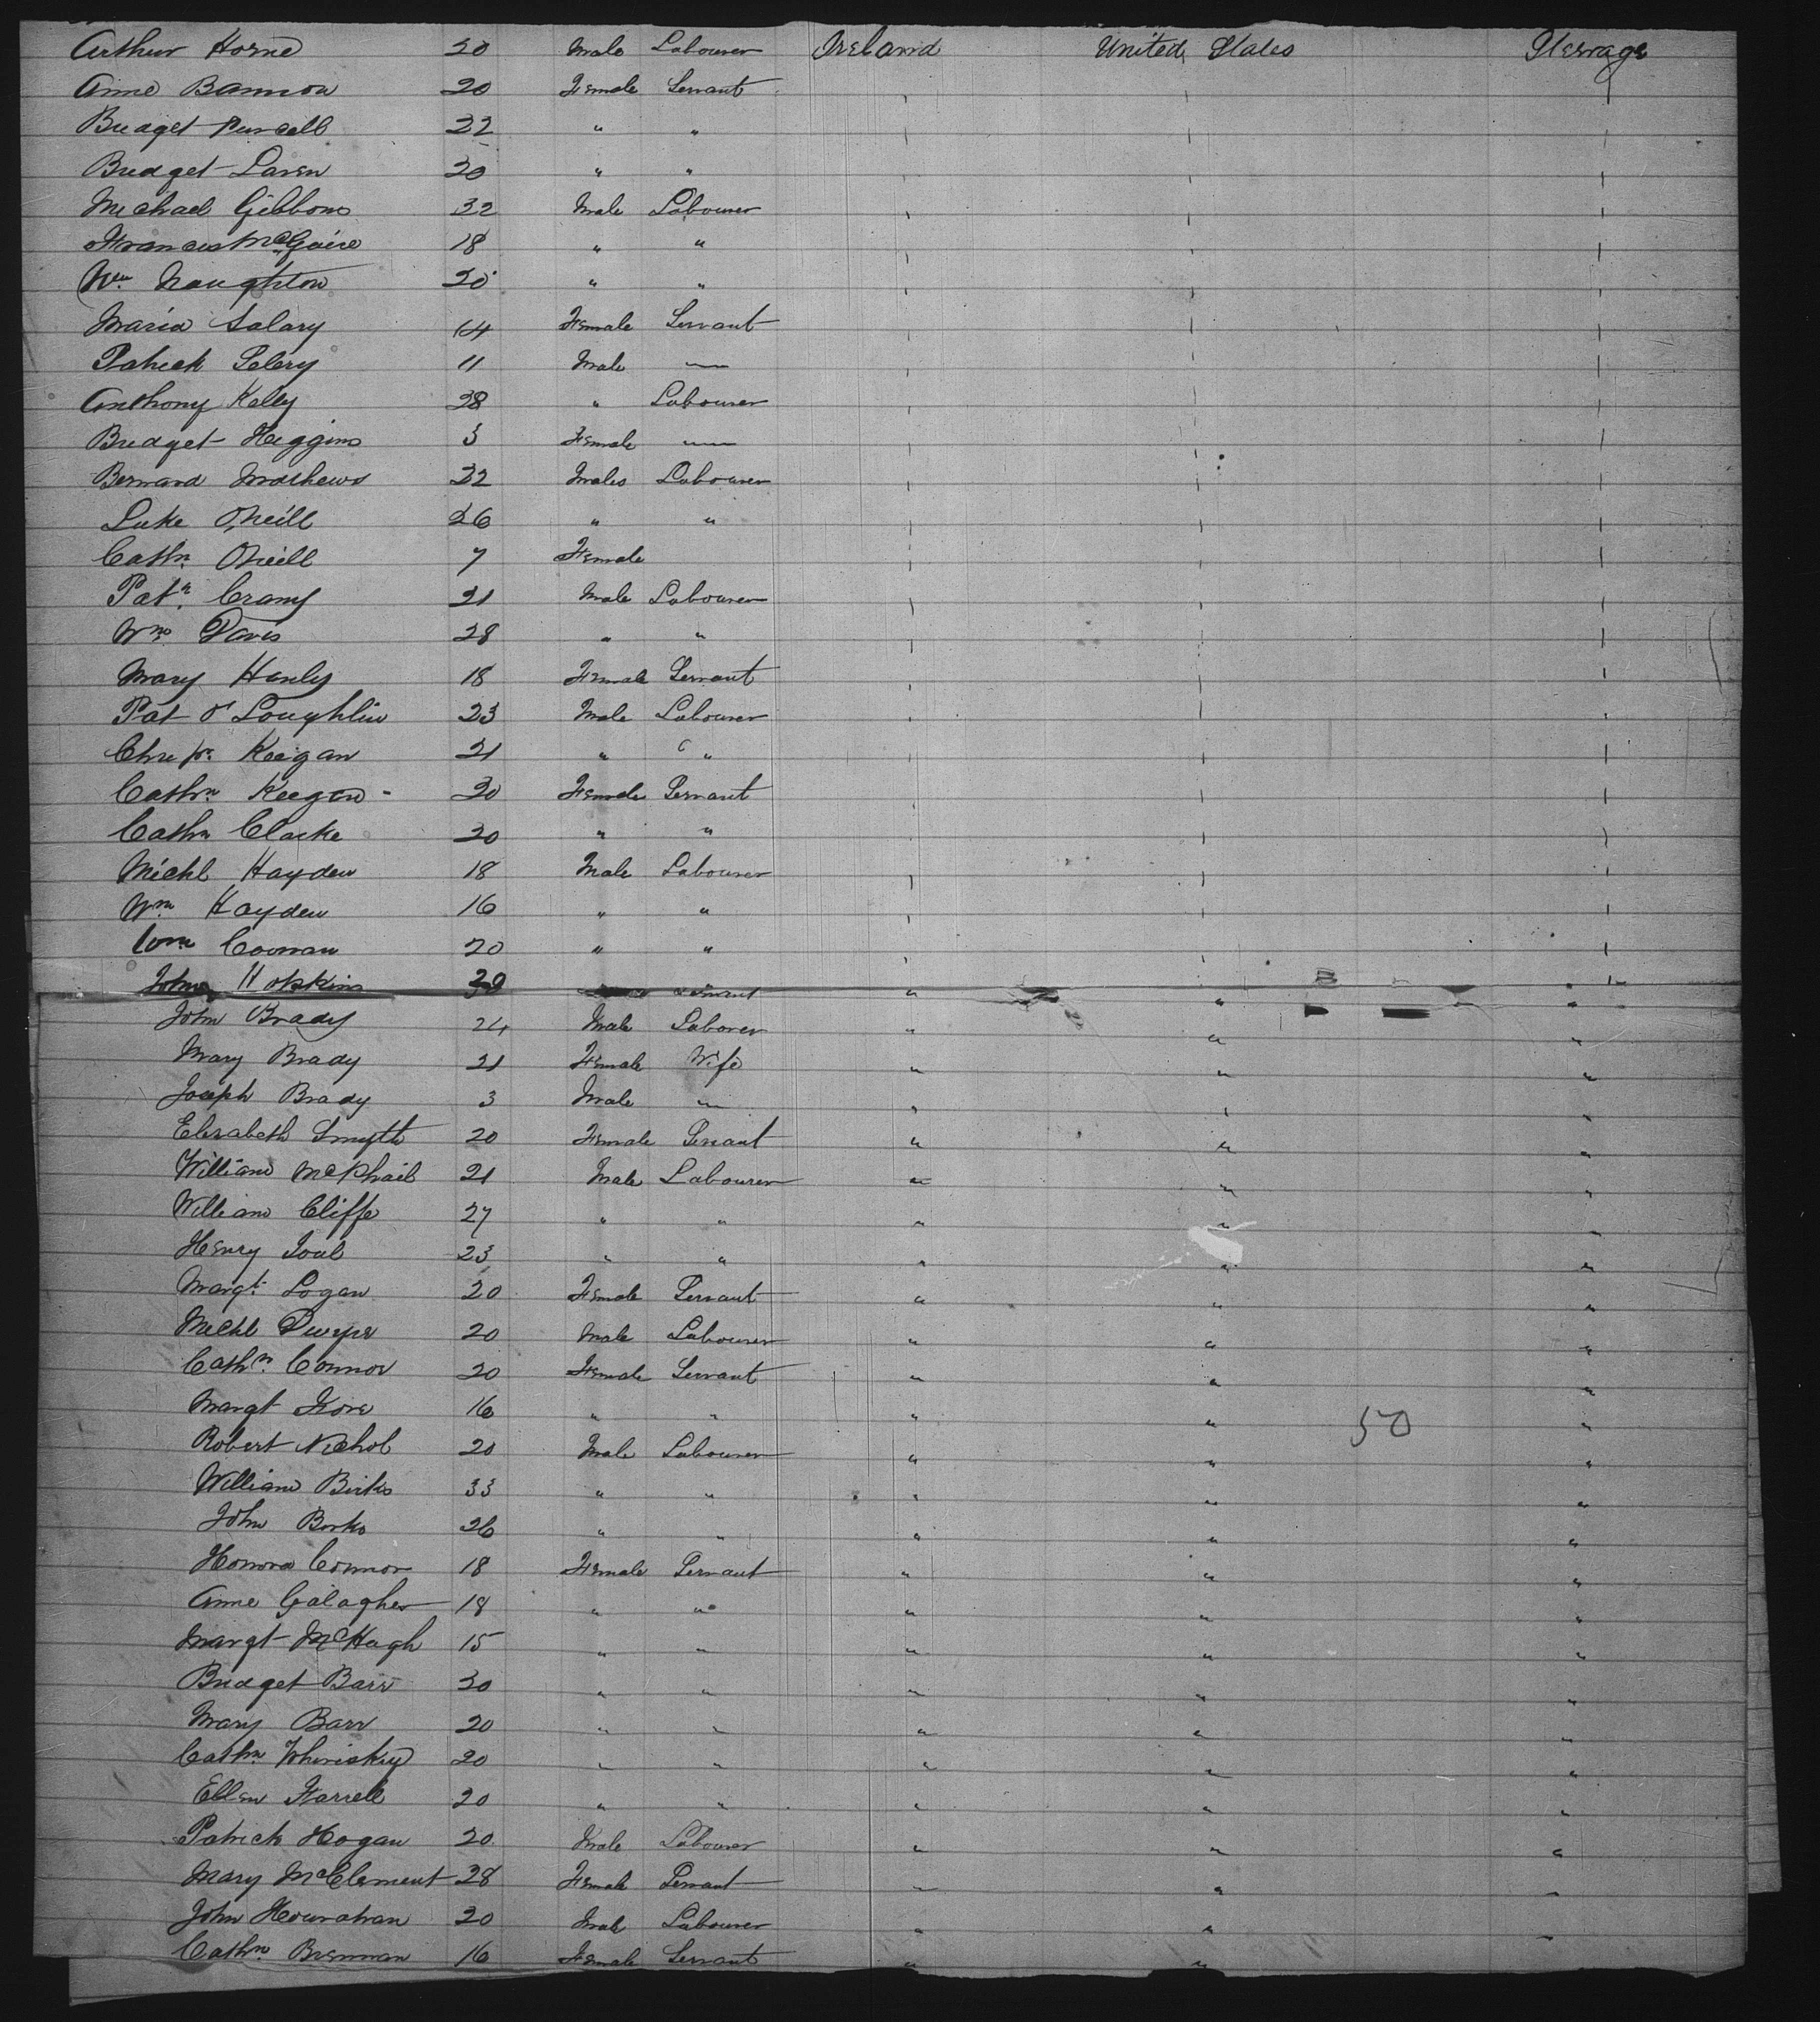 Arthur Horne 20 Male Labourer Ireland United States Steerage
Anne Bannon 20 Female Servant
Bridget Purcell 22 " "
Bridget Laven 20 " "
Michael Gibbons 32 Male Labourer
Francis McGuire 18 " "
Wm Naughton 20 " "
Maria Salary 14 Female Servant
Patrick Selery 11 Male —
Anthony Kelly 28 " Labourer
Bridget Higgins 3 Female —
Bernard Mathews 32 Males Labourer
Luke O'Neill 26 " "
Cathn. O'Neill 7 Female
Patk. Crany 21 Male Labourer
Wm Davis 28 " "
Mary Hanly 18 Female Servant
Pat O'Loughlin 23 Male Labourer
Keegan 21 " "
Cathn. Keegan 20 Female Servant
Cathn Clarke 20 " "
Michl Hayden 18 Male Labourer
Wm Hayden 16 " "
Coonan 20 " "
John Hopkins Servant " " "
John Brady 24 Male Laborer " " "
Mary Brady 21 Female Wife " " "
Joseph Brady 3 Male — " " "
Elizabeth Smyth 20 Female Servant " " "
William McPhail 21 Male Labourer " " "
William Cliffe 27 " " " " "
Henry 23 " " " " "
Margt. Logan 20 Female Servant " " "
Michl Dwyer 20 Male Labourer " " "
Cathn. Connor 20 Female Servant " " "
Margt 16 " " " " 50 "
Robert Nichol 20 Male Labourer " " "
William Birks 33 " " " " "
John Borks 26 " " " " "
Honora Connor 18 Female Servant " " "
Anne Galagher 18 " " " " "
Margt McHugh 15 " " " " "
Bridget Barr 20 " " " " "
Mary Barr 20 " " " " "
Cathn Whiriskey 20 " " " " "
Ellen Farrell 20 " " " " "
Patrick Hogan 20 Male Labourer " " "
Mary McClement 28 Female Servant " " "
John Hourahan 20 Male Labourer " " "
Cathn. Brennan 16 Female Servant " "